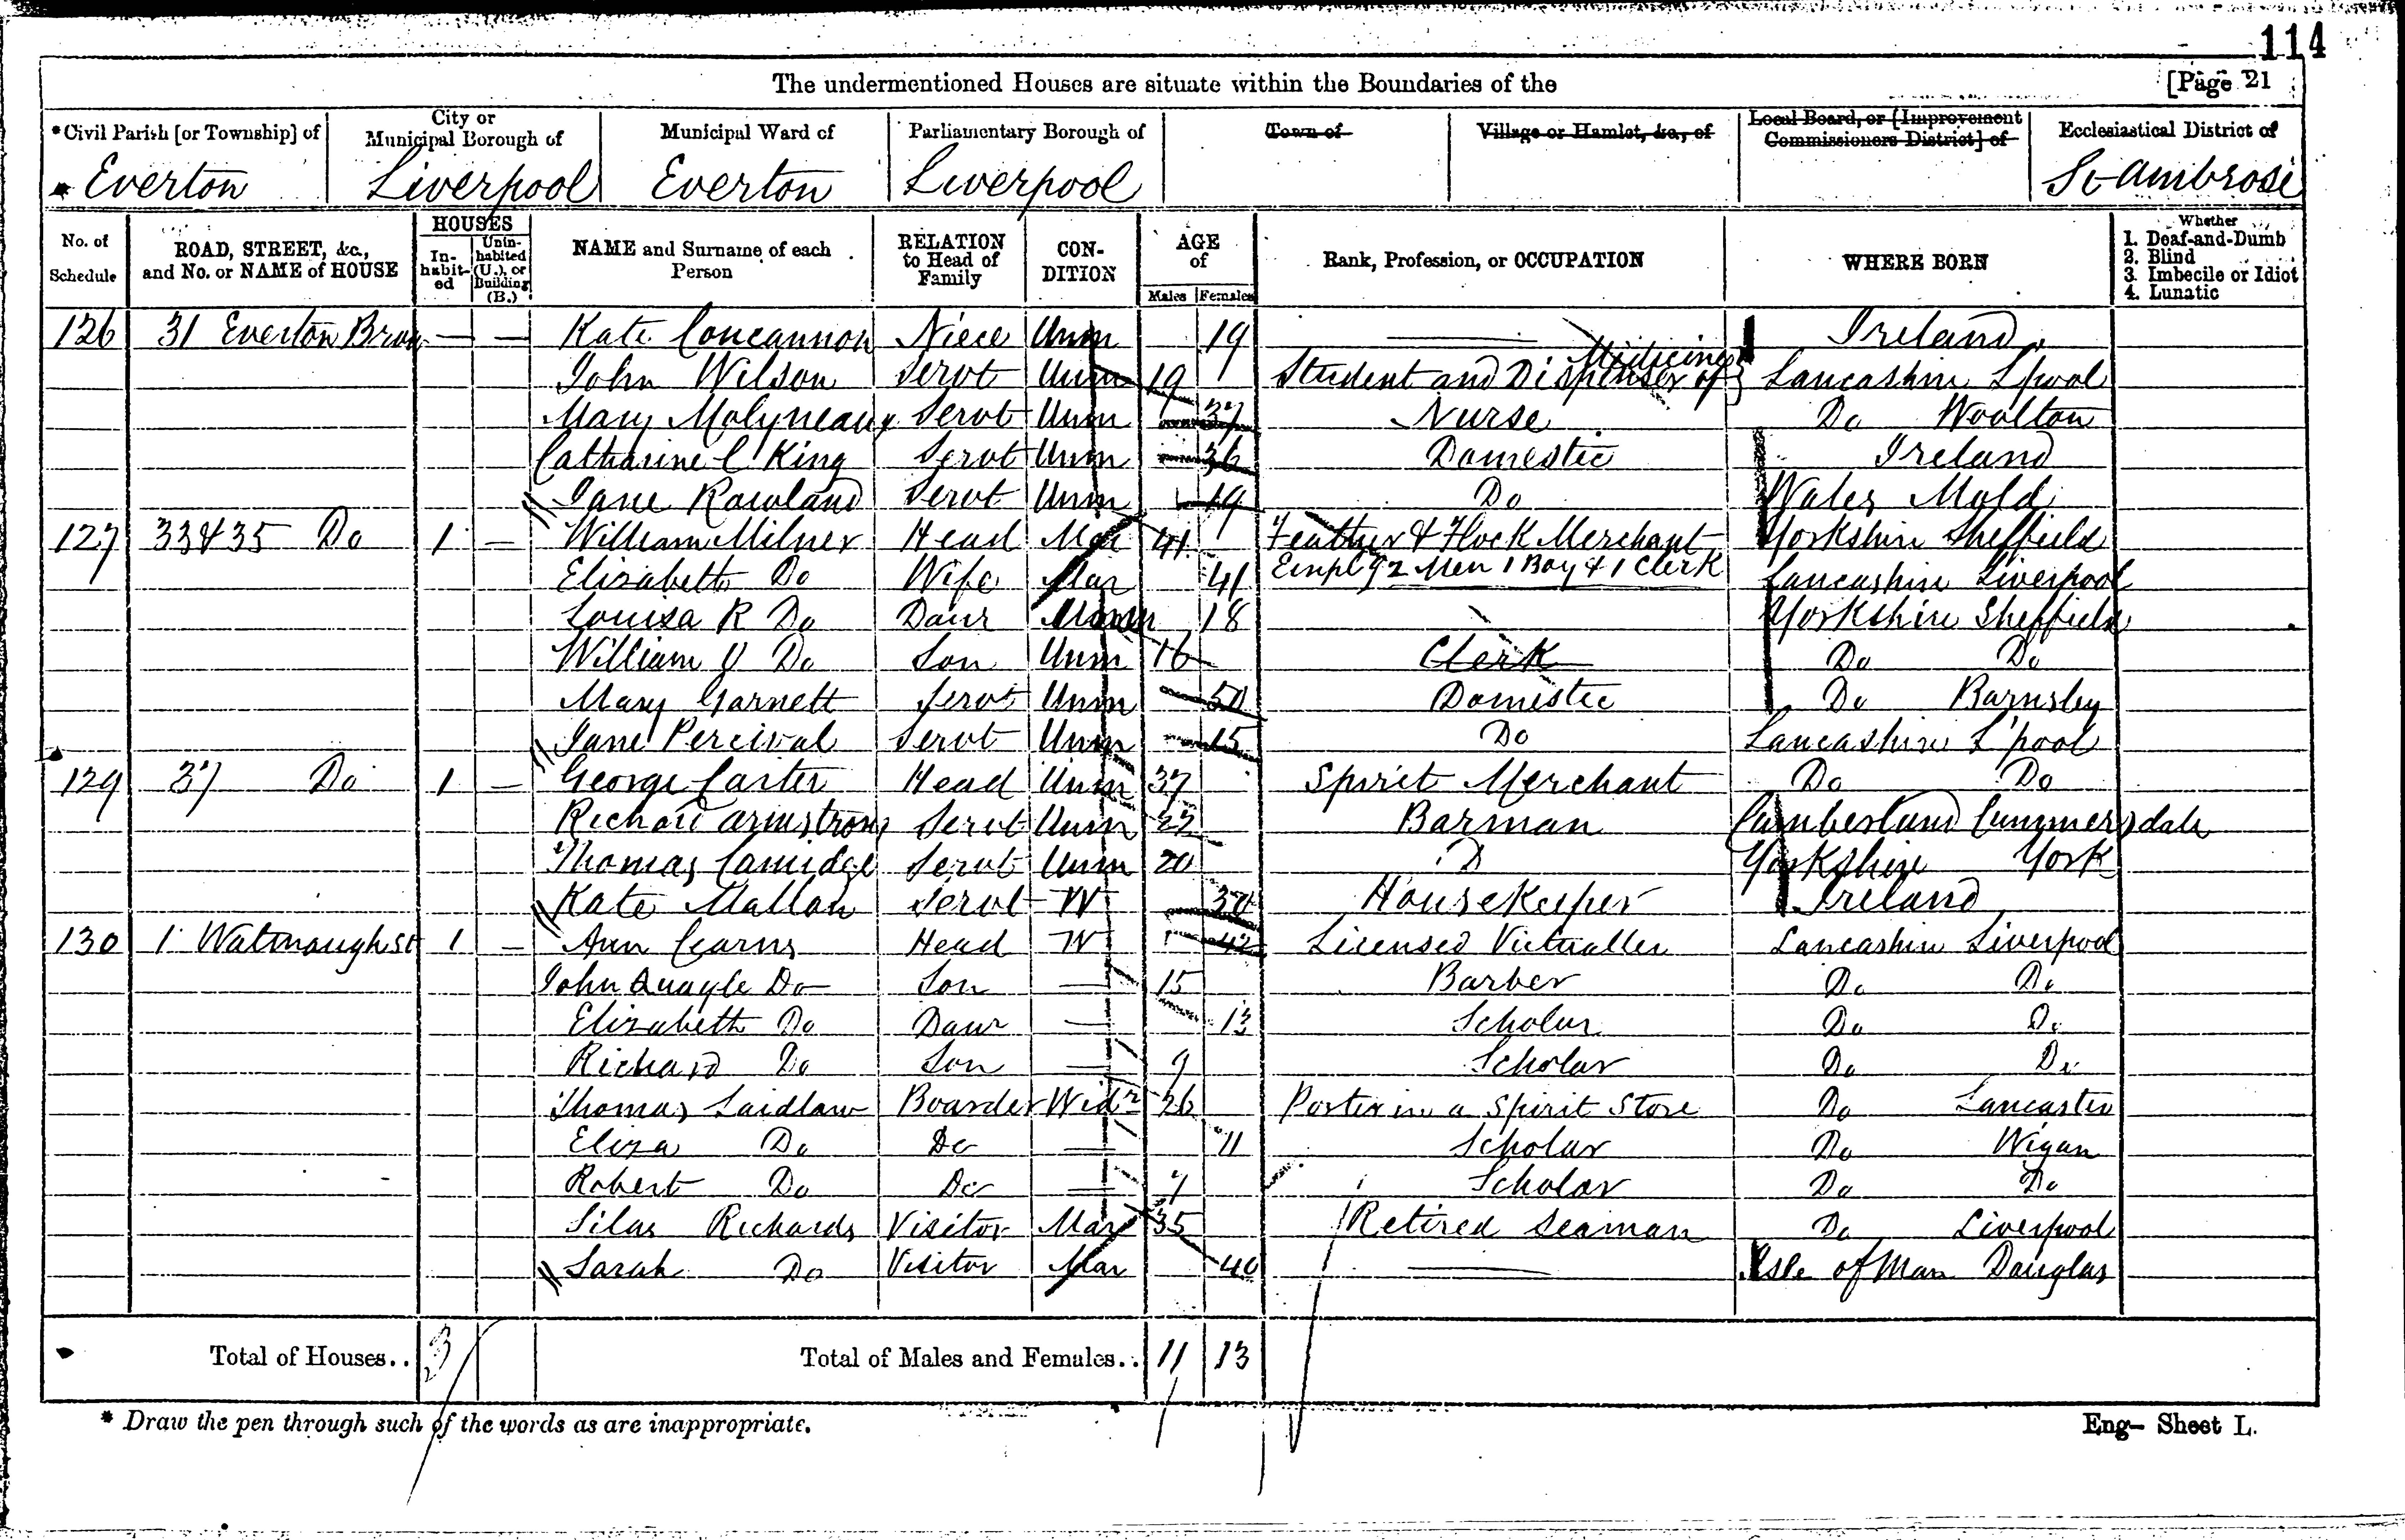 114
The undermentioned Houses are situate within the Boundaries of the [Page 21
*Civil Parish [or Township] of City or Municipal Borough of Municipal Ward of Parliamentary Borough of Town of Village or Hamlet, &c., of Local Board, or [Improvement Commissioners District] of Ecclesiastical District of
Everton Liverpool Everton Liverpool St Ambrose
No. of Schedule ROAD, STREET, &c., and No. or NAME of HOUSE HOUSES Inhabited Uninhabited (U.), or Building (B.) NAME and Surname of each Person RELATION to Head of Family CONDITION AGE of Males Females Rank, Profession, or OCCUPATION WHERE BORN Whether 1. Deaf-and-Dumb 2. Blind 3. Imbecile or Idiot 4. Lunatic
126 31 Everton Brow — — Kate Concannon Niece Unm 19 — Ireland
John Wilson Servt Unm 19 Student and Dispenser of Medicine Lancashire L'pool
Mary Molyneaux Servt Unm 37 Nurse Do Woolton
Catharine C King Servt Unm 36 Domestic Ireland
Jane Rowland Servt Unm 19 Do Wales Mold
127 33 & 35 Do 1 — William Milner Head Mar 41 Feather & Flock Merchant Yorkshire Sheffield
Elizabeth Do Wife Mar 41 Empl g 2 Men 1 Boy & 1 Clerk Lancashire Liverpool
Louisa R Do Daur Unm 18 Yorkshire Sheffield
William J Do Son Unm 16 Clerk Do Do
Mary Garnett Servt Unm 50 Domestic Do Barnsley
Jane Percival Servt Unm 15 Do Lancashire L'pool
129 37 Do 1 — George Carter Head Unm 37 Spirit Merchant Do Do
Richard Armstrong Servt Unm 22 Barman Cumberland Cummersdale
Thomas Camidge Servt Unm 20 D Yorkshire York
Kate Mallon Servt W 30 HouseKeeper Ireland
130 1 Watmough St 1 — Ann Cearns Head W 42 Licensed Victualler Lancashire Liverpool
John Quayle Do Son — 15 Barber Do Do
Elizabeth Do Daur — 13 Scholar Do Do
Richard Do Son — 9 Scholar Do Do
Thomas Laidlaw Boarder Widr 26 Porter in a Spirit Store Do Lancaster
Eliza Do Do — 11 Scholar Do Wigan
Robert Do Do — 7 Scholar Do Do
Silas Richards Visitor Mar 35 Retired Seaman Do Liverpool
Sarah Do Visitor Mar 40 — Isle of Man Douglas
Total of Houses.. 3 Total of Males and Females.. 11 13
* Draw the pen through such of the words as are inappropriate. Eng- Sheet L.